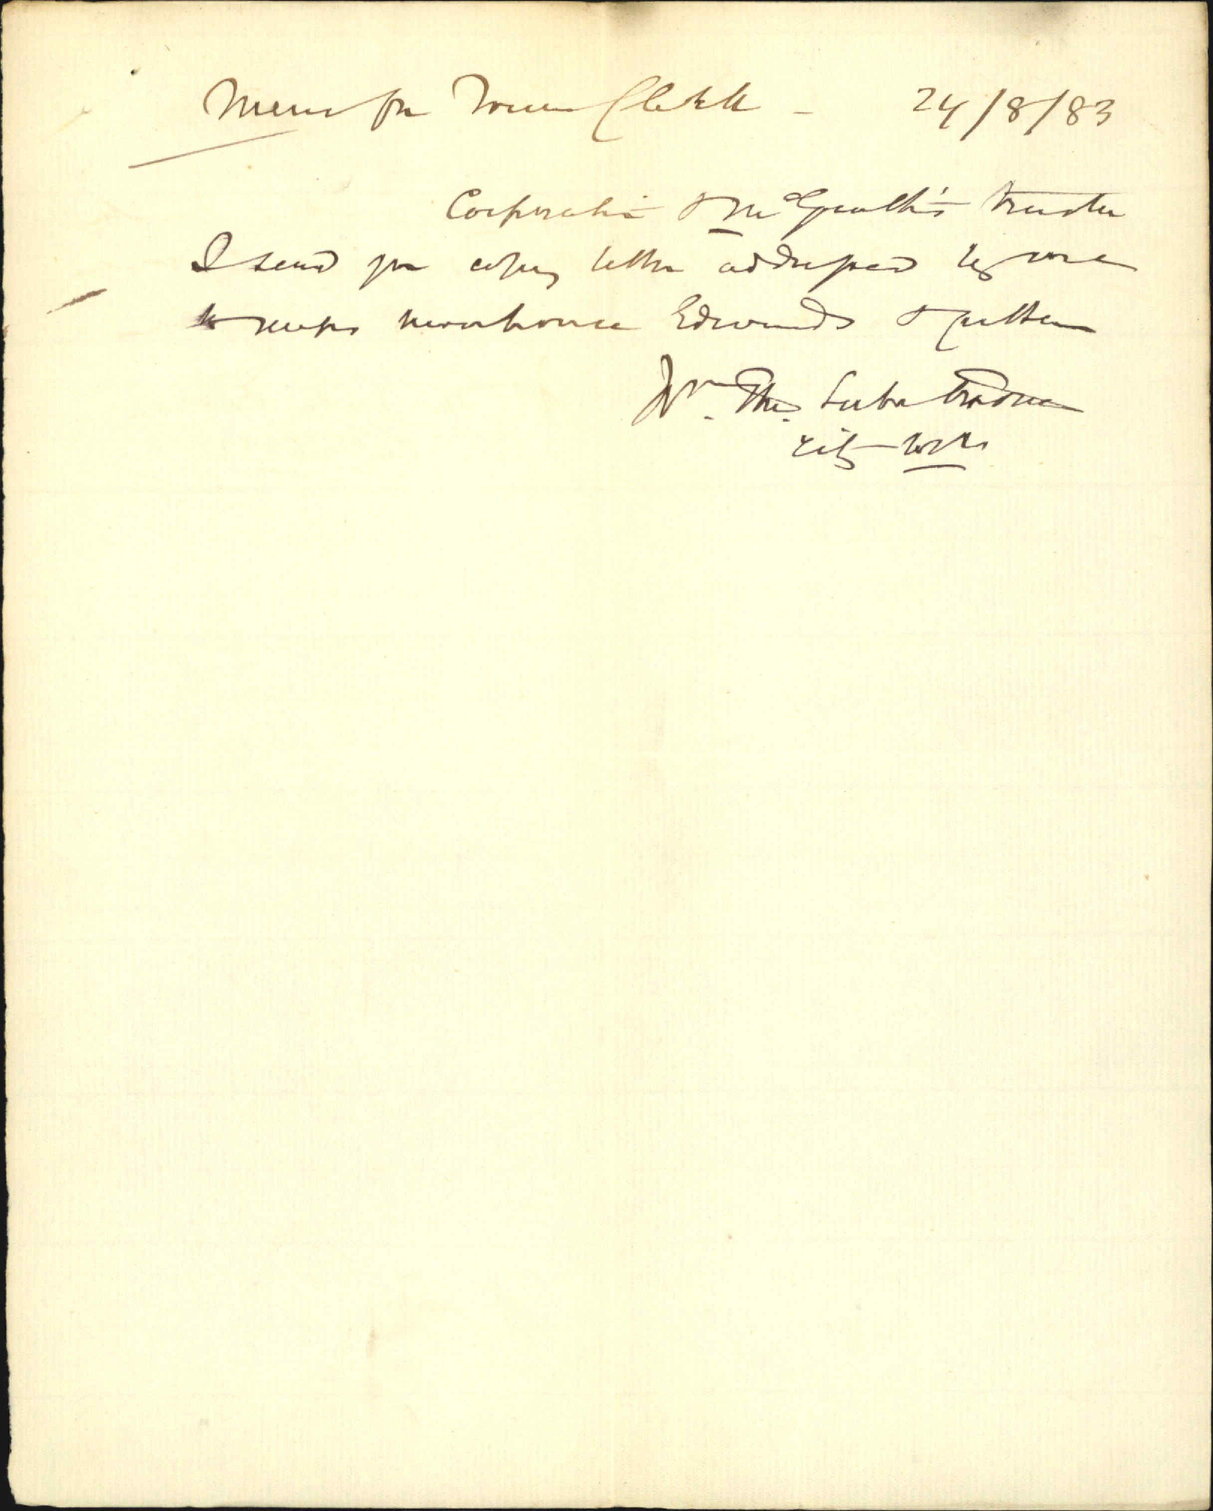 Memo for Town Clerk - 24/8/83
Corporation & McGrath's trustee
I send you copy letter addressed by me
to Messrs Moorhouse Edwards &
Wm. Tho.
City